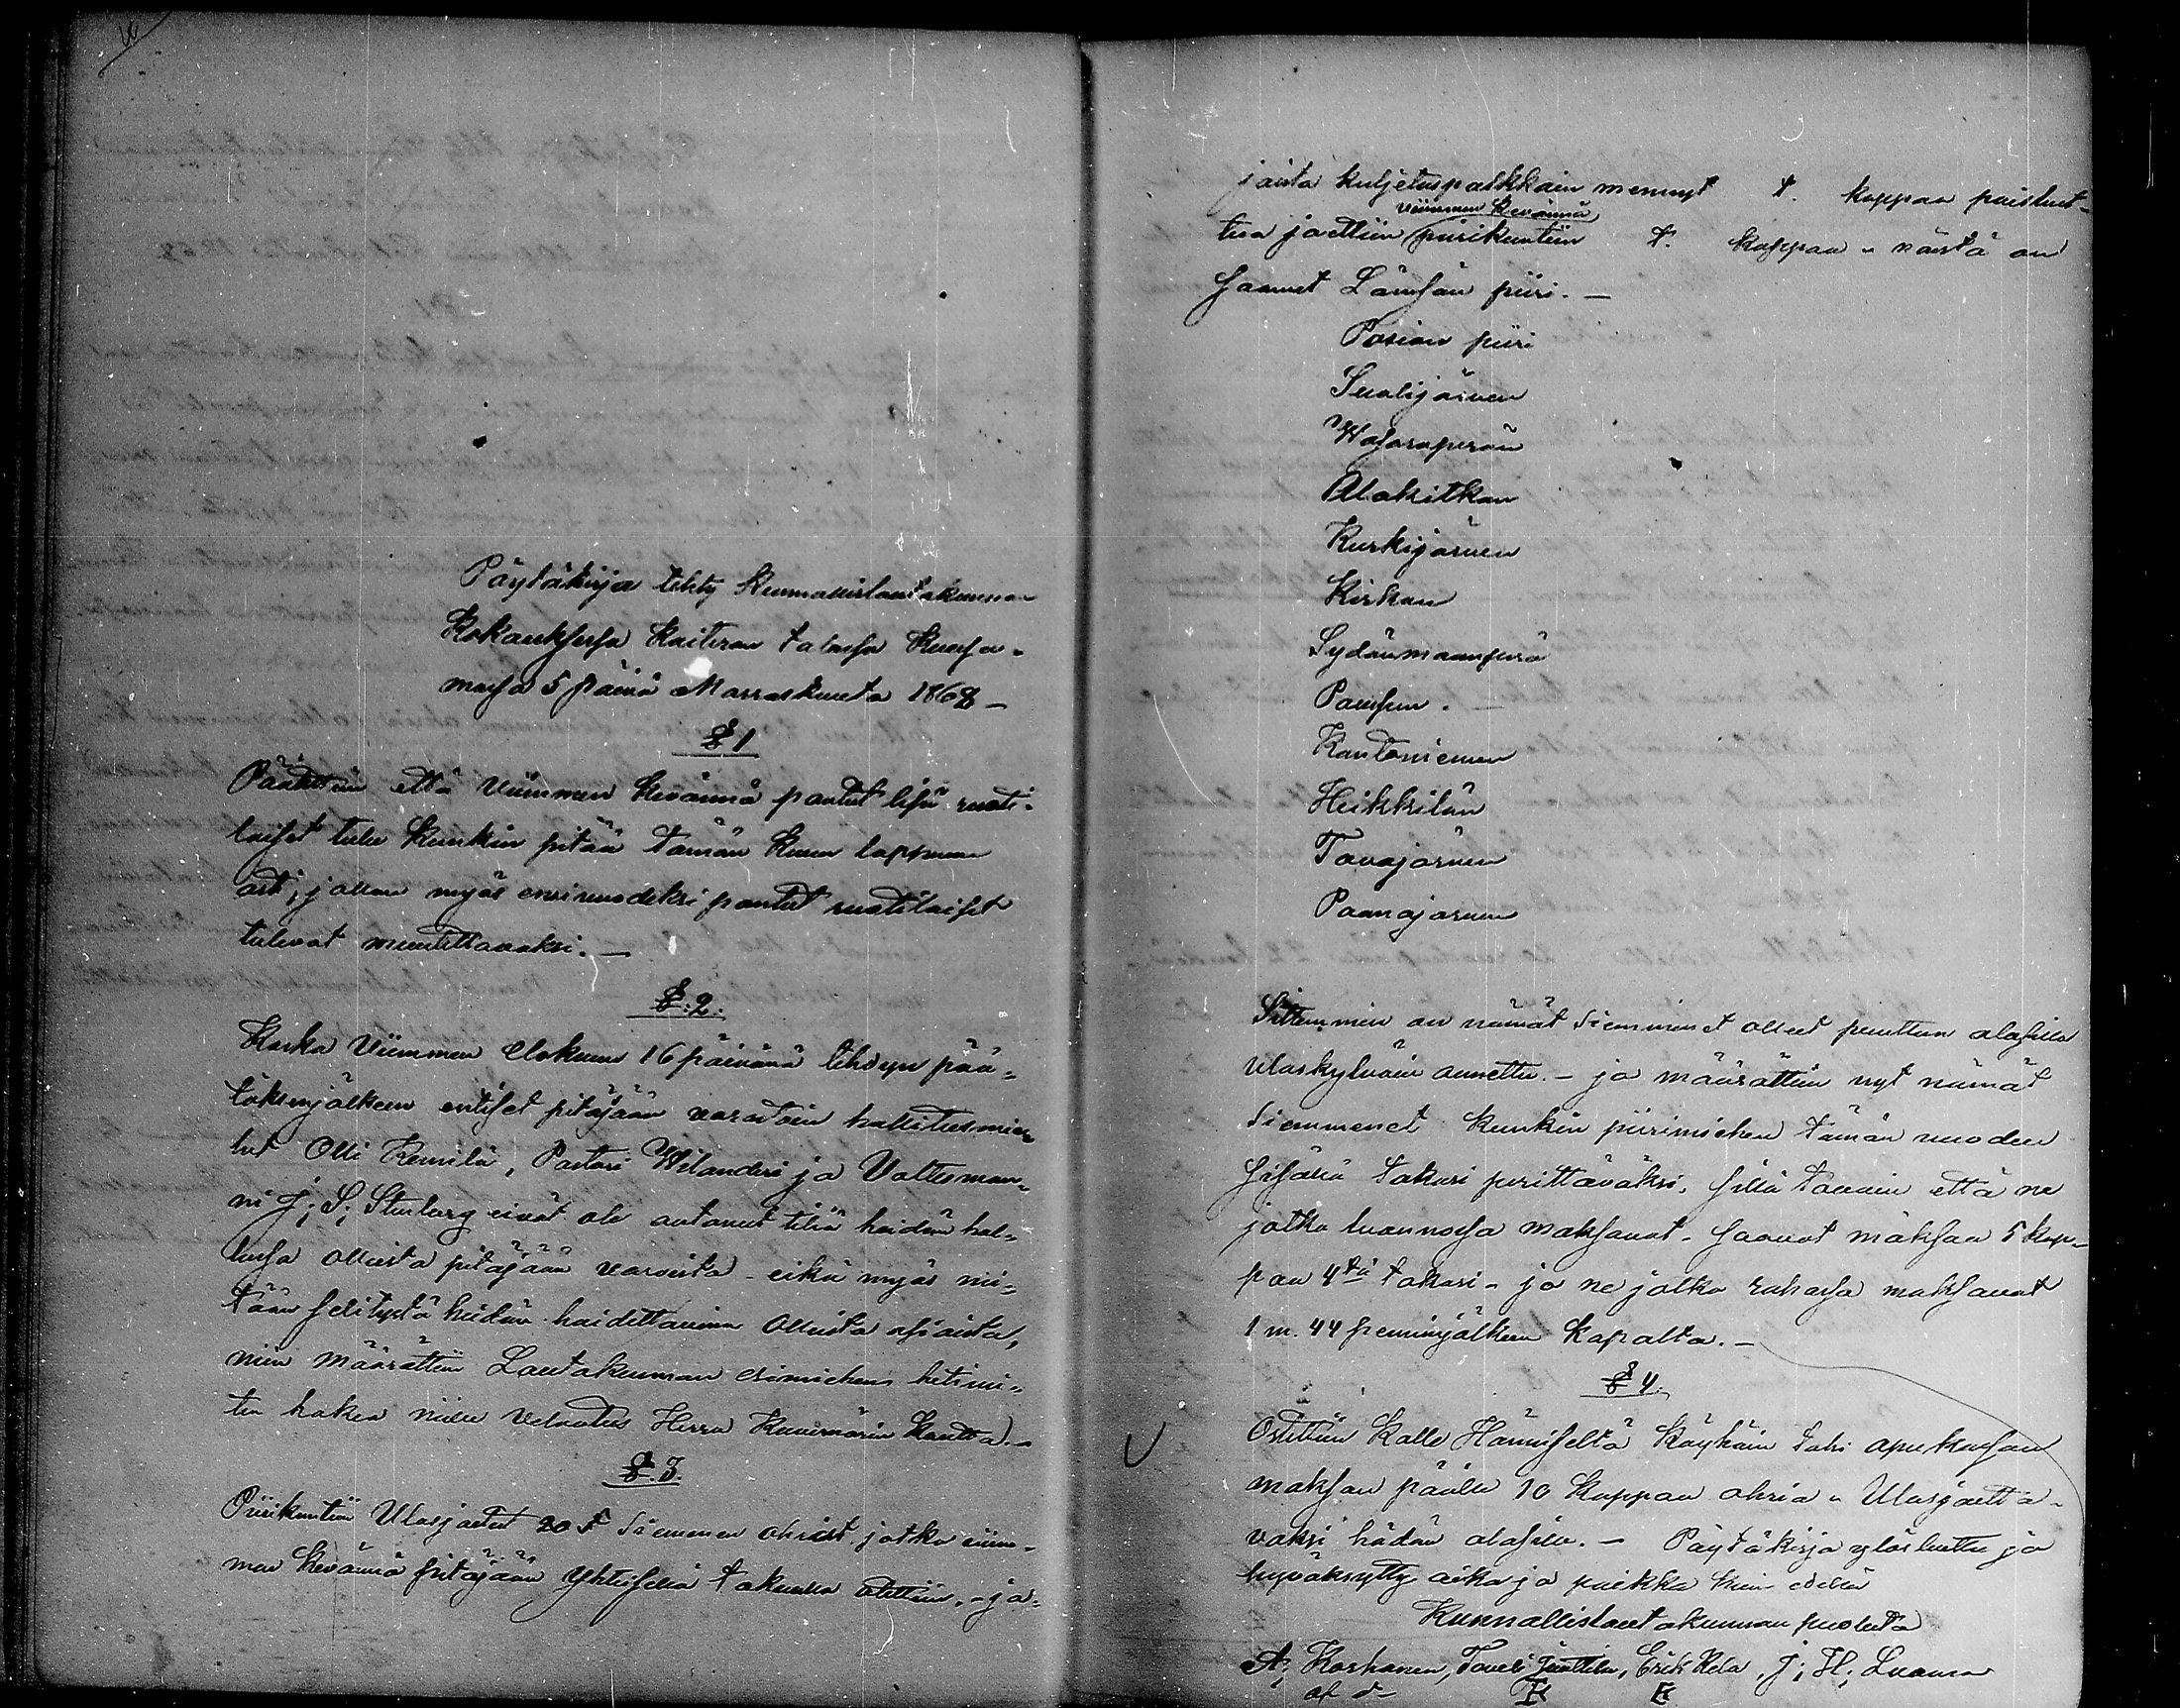 Päytäkirja tehty Kunnallislautakunnan
Kokauksessa Kaiteran talossa Kuusa-
mossa 5 päivä Marraskuuta 1868 –
§ 1
Päätettiin että viimmen kevännä pantut lisä ruoti-
laiset tulee kunkin pitää tämän kuun loppuun
asti, jolloin myös ensivuodeksi pantut ruotilaiset
tulevat muutettavaksi. –
§. 2.
Koska viimmen Elokuun 16 päivänä tehdyn pää-
töksenjälkeen entiset pitäjään varatoin hallitusmie-
het Olli Kemilä, Pastori Welanderi ja Valtesman-
ni J; S; Stenberg eivät ole antanut tiliä heidän hal-
lussa olleista pitäjään varoista – eikä myös mi-
tään selitystä heidän hoidettavina olleista asioista,
niin määrättiin Lautakunnan esimiehen hetimi-
ten hakea niille velvoitus Herra Kuvernörin kautta. –
§. 3.
Piirikuntiin Ulosjaetut 20 t siemmen ohrist jotka viim-
men kevännä pitäjään yhteisellä takuulla otettiin, – ja-
joista kuljetuspalkkain mennyt t. kappaa poisluet-
viimmen kevännä
tua jaettiin piirikuntiin t. kappaa – näistä on
saanut Lämsän piiri. –
Posion piiri
Suolijärven
Wasaraperän
Alakitkan
Kurkijärven
Kirkon
Sydänmaanperä
Poussun. –
Kantoniemen
Heikkilän
Tavajärven
Paanajärven
Sittemmin on nämät siemmenet olleet puuttuva alasille
uloskylväin annettu. – ja määrättiin nyt nämät
siemmenet kunkin piirimiehen tämän vuoden
sisällä takasi perittäväksi, sillä tavoin että ne
jotka luonnossa maksavat. saavat maksaa 5 kap-
paa 4tä takasi – ja ne jotka rahassa maksavat
1 m. 44 penninjälkeen kapalta. –
§ 4.
Ostettiin Kalle Hämiseltä Käyhäin talvi apukassan
maksan päälle 10 kappaa ohria – Ulosjaetta-
vaksi hädän alasille. – Päytäkirja ylösluettu ja
hyväksytty aika ja paikka kuin edellä
Kunnallislautakunnan puolesta
A; Korhonen, Taveli Junttila, Erik Kela, J; H; Luoma